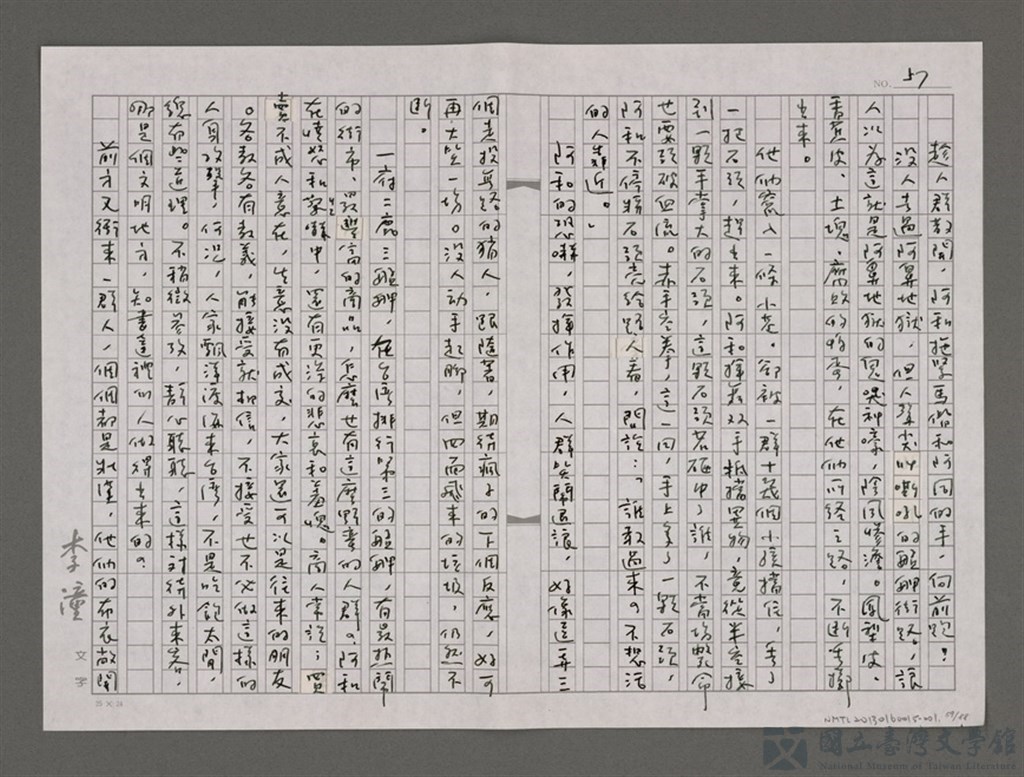 NO. 57
趁人群散開，阿和拖緊馬偕和阿回的手，向前跑？
沒人去過阿鼻地獄，但人聲尖叫嘶吼的艋舺街路，讓
人以為這就是阿鼻地獄的鬼哭神嚎，陰風慘滲。鳳梨皮、
香蕉皮、土塊、腐敗的物零，在他們所經之路，不斷丟擲
出來。
他們竄入一條小巷。卻被一群十幾個小孩擋住，丟了
一把石頭，趕出來。阿和揮舞双手抵擋異物，竟從半空接
到一顆手掌大的石頭，這顆石頭若砸中了誰，不當場斃命
也要頭破血流。赤手空拳，這一回，手上多了一顆石頭，
阿和不停將石頭亮給路人看，開說：「誰敢過來？不想活
的人靠近。」
阿和的恐嚇，發揮作用，人群笑鬧退讓，好像這弄三
個走投無路的猶人，跟隨著，期待瘋子的下個反應，好可
再大笑一場。沒人動手起腳，但四面飛來的垃圾，仍然不
斷。
一府二鹿三艋舺，在台灣排行第三的艋舺，有最熱鬧
的街市、最豐富的商品，怎麼也有這麼野蠻的人群？阿和
在憤怒和驚嚇中，還有更深的悲哀和羞愧。商人常說：買
賣不成人意在，生意沒有成交，大家還可以是往來的朋友
。各教各有教義，能接受就相信，不接受也不必做這樣的
人身攻擊，何況，人家飄洋渡海來台灣，不是吃飽太閒，
總有些道理。不稍微參攷，靜心聽聽，這樣對待外來客，
哪是個文明地方，知書達禮的人做得出來的？
前方又衝來一群人，個個都是壯漢，他們的布衣敞開
李潼
文字
25 × 24
NMTL20130160015-001
國立臺灣文學館
National Museum of Taiwan Literature